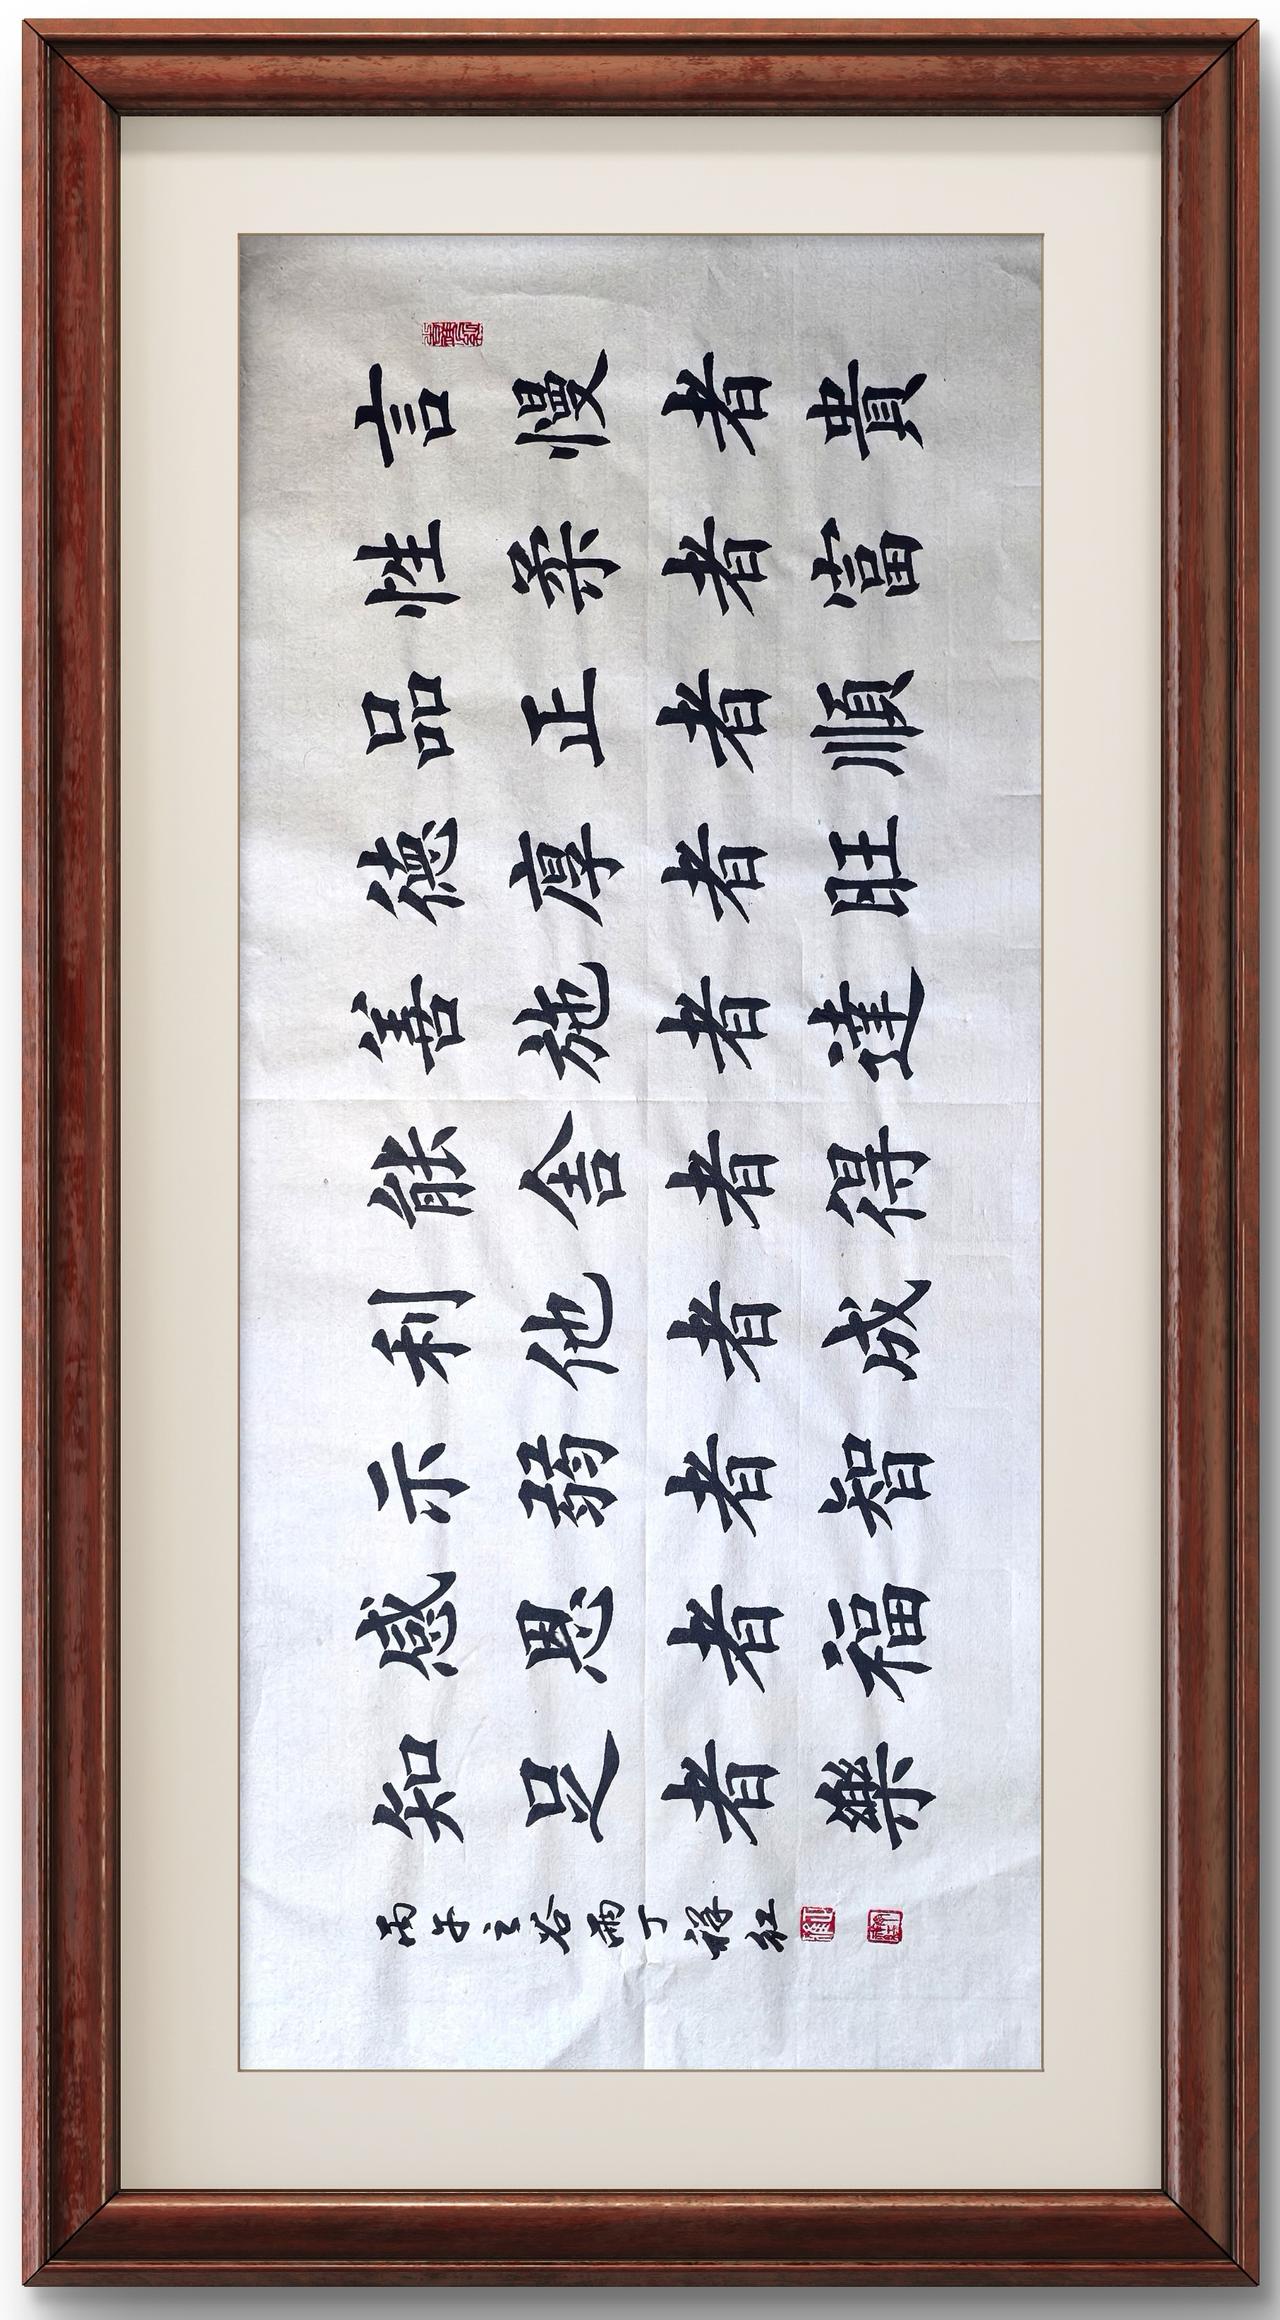 言慢者貴
性柔者富
品正者順
德厚者旺
善施者達
能舍者得
利他者成
示弱者智
感恩者福
知足者樂
丙午之谷雨丁祥红